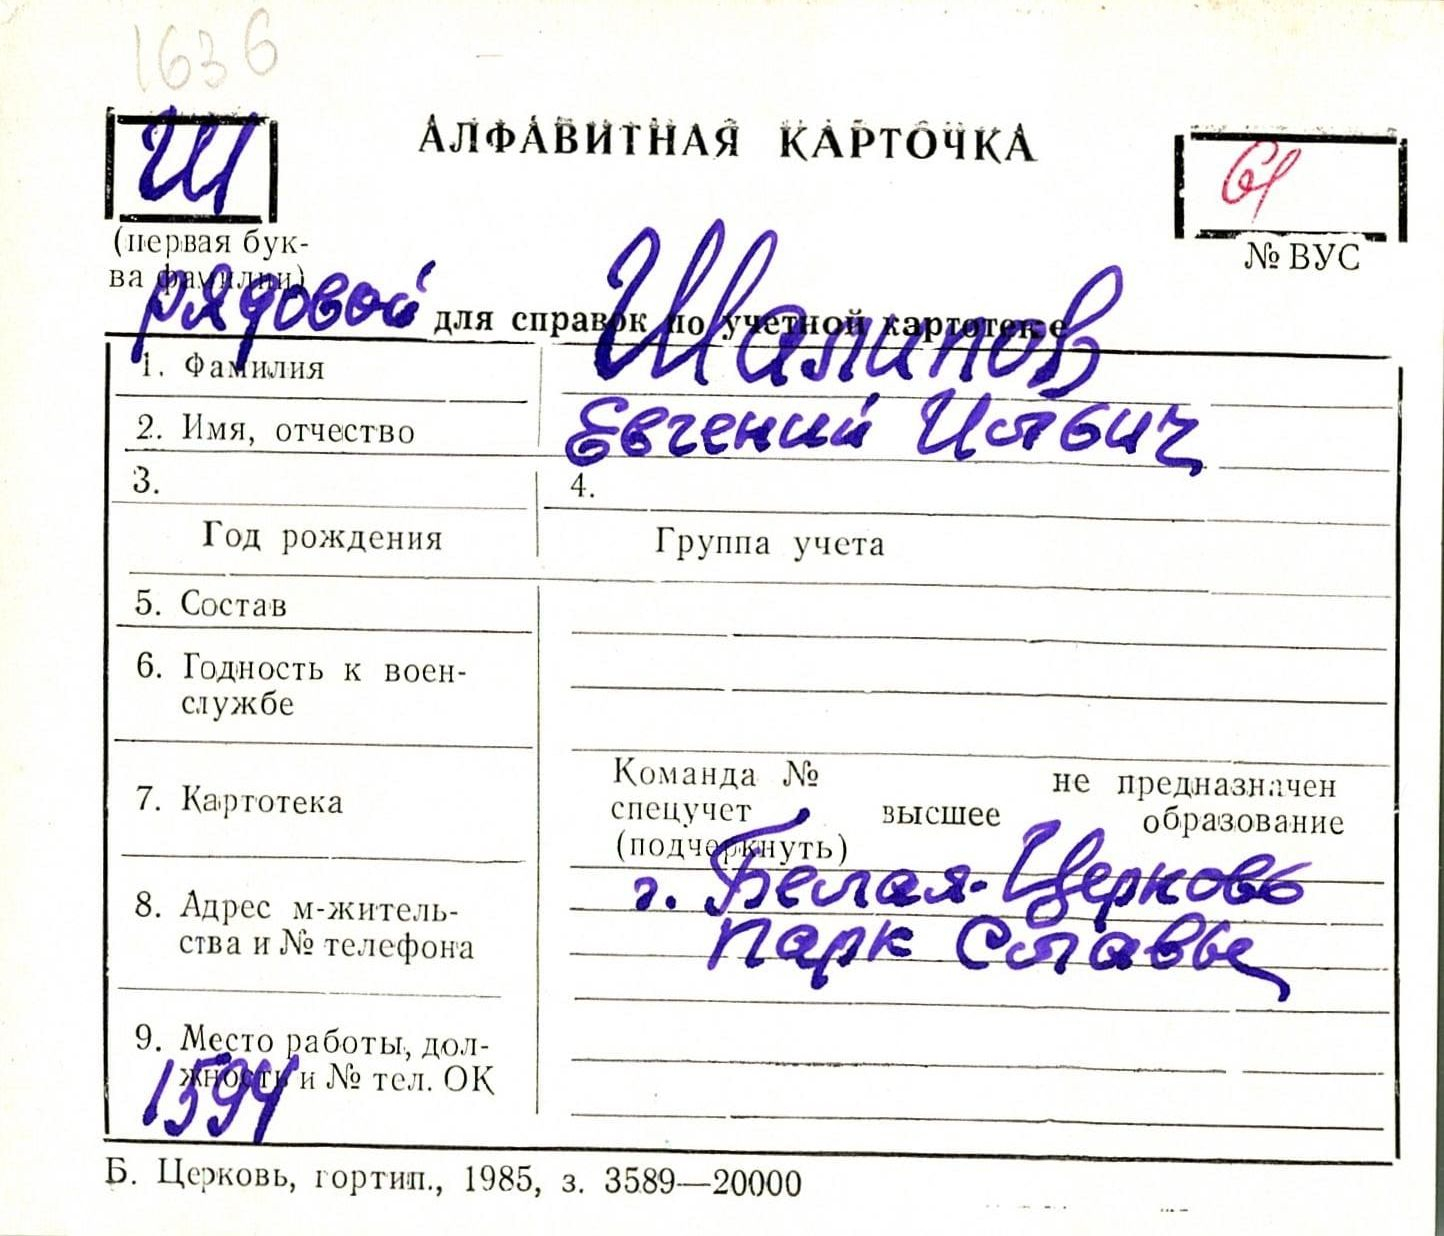 1636
Ш
АЛФАВИТНАЯ КАРТОЧКА
61
(первая бук-
ва фамилии)
№ ВУС
рядовой
для справок по учетной картотеке
1. Фамилия Шалипов
2. Имя, отчество Евгений
3. 4.
Год рождения Группа учета
5. Состав
6. Годность к воен-
службе
7. Картотека
Команда № не предназначен
спецучет высшее образование
(подчеркнуть)
8. Адрес м-житель-
ства и № телефона
г. Белая-Церковь
парк
9. Место работы, дол-
жность и № тел. ОК
1594
Б. Церковь, гортип., 1985, з. 3589—20000